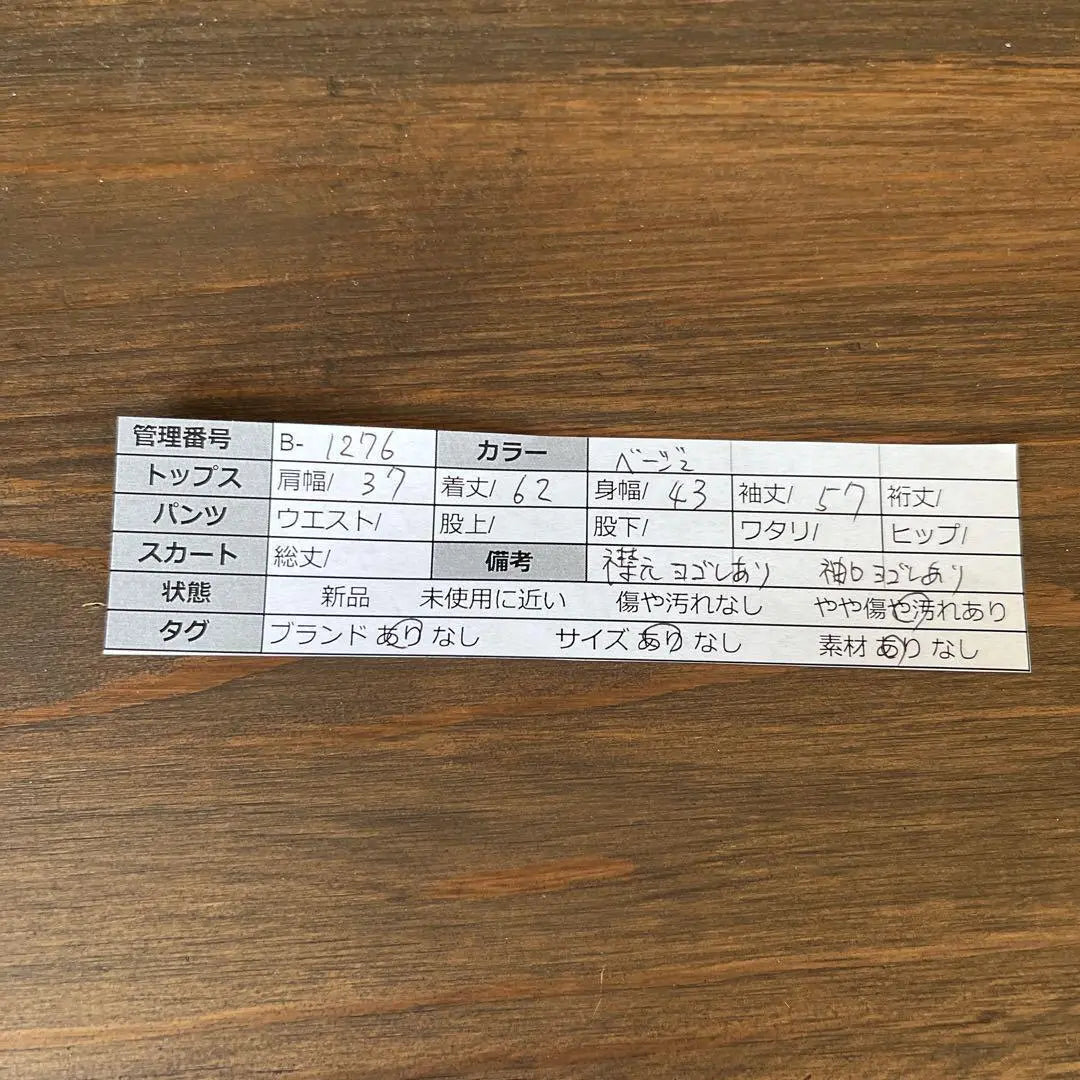 管理番号 B- 1276 カラー ベージュ
トップス 肩幅/ 37 着丈/ 62 身幅/ 43 袖丈/ 57 裄丈/
パンツ ウエスト/ 股上/ 股下/ ワタリ/ ヒップ/
スカート 総丈/ 備考 襟元 ヨゴレあり 袖口 ヨゴレあり
状態 新品 未使用に近い 傷や汚れなし やや傷や汚れあり
タグ ブランド あり なし サイズ あり なし 素材 あり なし